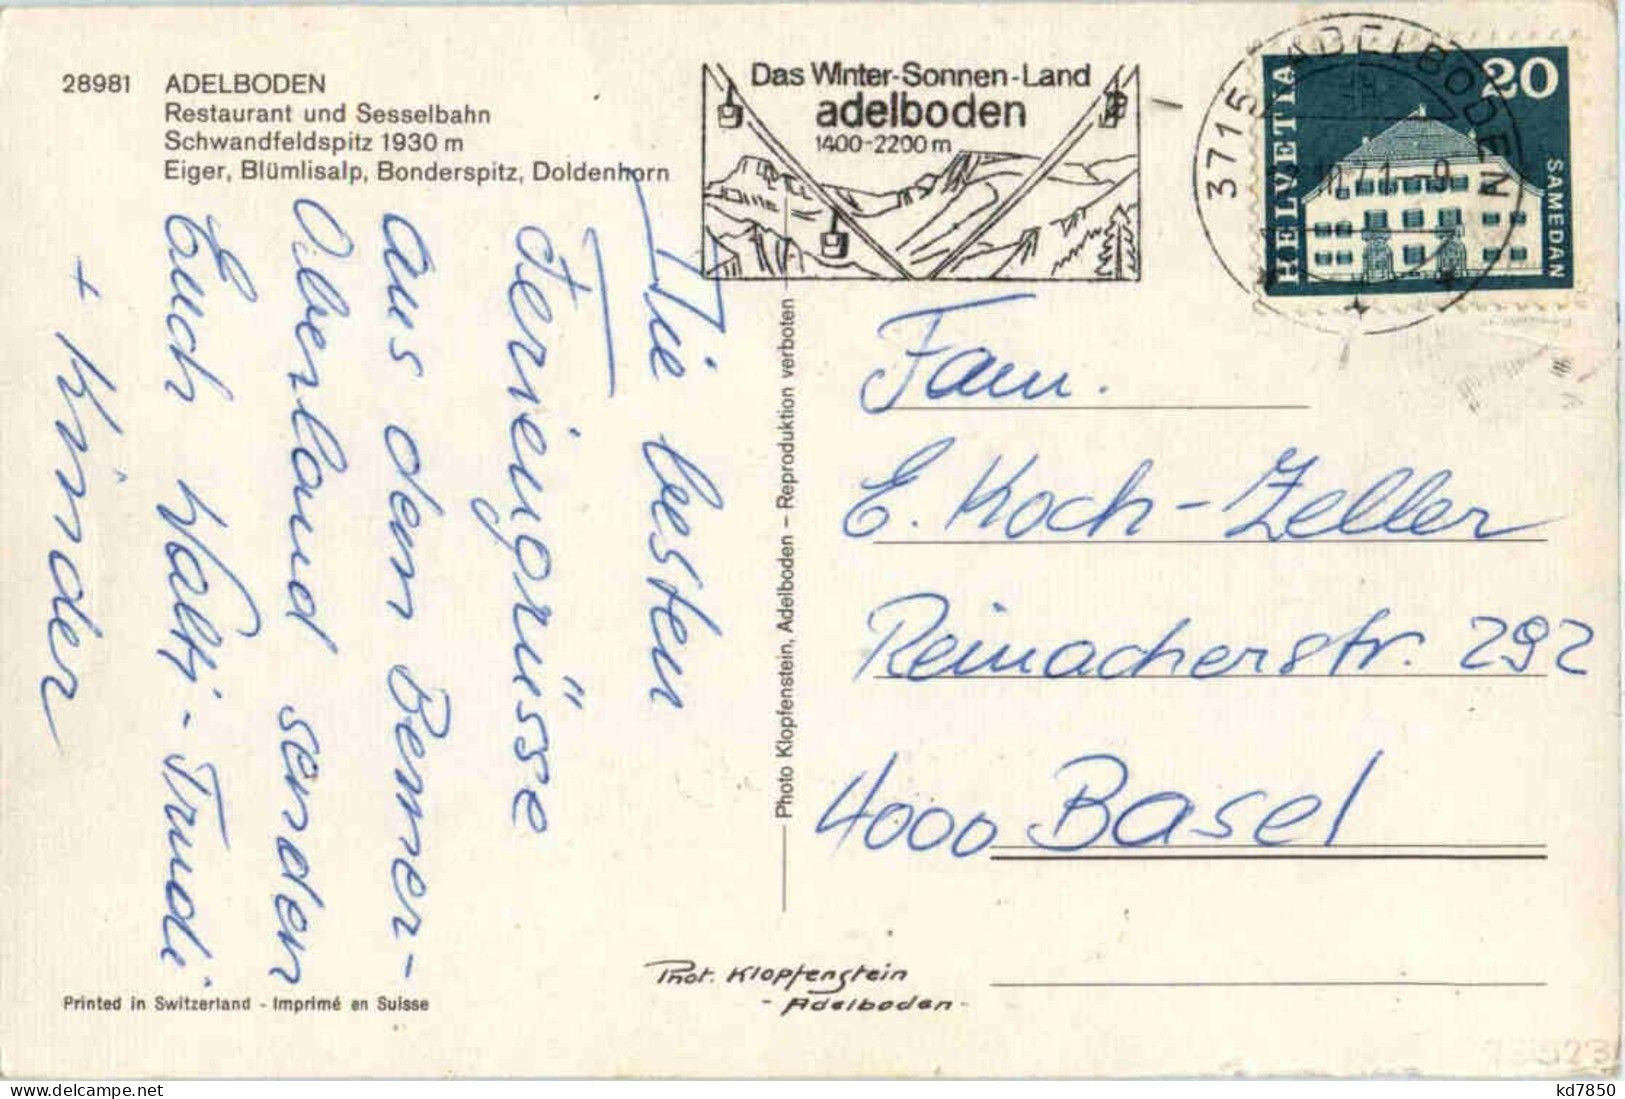 28981 ADELBODEN
Restaurant und Sesselbahn
Schwandfeldspitz 1930 m
Eiger, Blümlisalp, Bonderspitz, Doldenhorn
Die besten
Feriengrüsse
aus dem Berner-
Oberland senden
Euch Walti-Trudi
+ Kinder
Printed in Switzerland - Imprimé en Suisse
Photo Klopfenstein, Adelboden - Reproduktion verboten
Phot. Klopfenstein
- Adelboden -
Das Winter-Sonnen-Land
adelboden
1400-2200 m
3715 ADELBODEN
71.-9
HELVETIA
20
SAMEDAN
Fam.
E. Koch-Zeller
Reinacherstr. 292
4000 Basel
kd7850